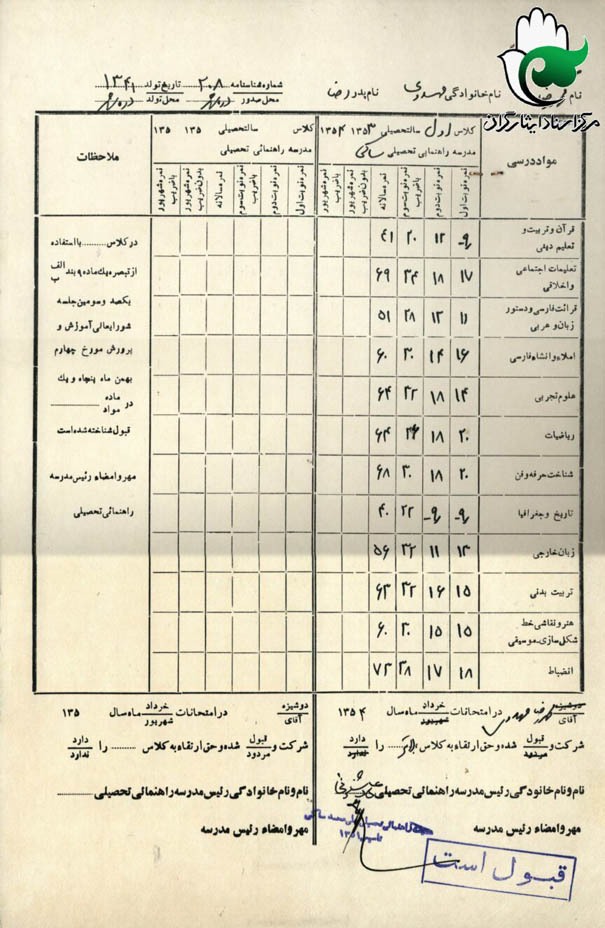 مرکز اسناد ایثارگران
نام نام خانوادگی مهدوی نام پدر رضا شماره شناسنامه ۲۰۸ تاریخ تولد ۱۳۴۱
محل صدور محل تولد
مواد درسی
کلاس اول سال تحصیلی ۱۳۵۳ ۱۳۵۴
مدرسه راهنمایی تحصیلی
نمره نوبت اول
نمره نوبت دوم
نمره نوبت سوم با ضریب
نمره سالانه
نمره شهریور بدون ضریب
نمره شهریور با ضریب
کلاس سال تحصیلی ۱۳۵ ۱۳۵
مدرسه راهنمائی تحصیلی
نمره نوبت اول
نمره نوبت دوم
نمره نوبت سوم با ضریب
نمره سالانه
نمره شهریور بدون ضریب
نمره شهریور با ضریب
ملاحظات
قرآن و تربیت و تعلیم دینی ۹ ۱۲ ۲۰ ۴۱
تعلیمات اجتماعی و اخلاقی ۱۷ ۱۸ ۳۴ ۶۹
قرائت فارسی و دستور زبان و عربی ۱۱ ۱۲ ۲۸ ۵۱
املاء و انشاء فارسی ۱۶ ۱۴ ۳۰ ۶۰
علوم تجربی ۱۴ ۱۸ ۳۲ ۶۴
ریاضیات ۲۰ ۱۸ ۲۶ ۶۴
شناخت حرفه و فن ۲۰ ۱۸ ۳۰ ۶۸
تاریخ و جغرافیا ۹ ۹ ۲۲ ۴۰
زبان خارجی ۱۳ ۱۱ ۳۲ ۵۶
تربیت بدنی ۱۵ ۱۶ ۳۲ ۶۳
هنر و نقاشی خط شکل سازی - موسیقی ۱۵ ۱۵ ۳۰ ۶۰
انضباط ۱۸ ۱۷ ۳۸ ۷۳
در کلاس .......... با استفاده
از تبصره یک ماده ۹ بند الف ب
یکصد و سومین جلسه
شورایعالی آموزش و
پرورش مورخ چهارم
بهمن ماه پنجاه و یک
در ماده مواد
قبول شناخته شده است
مهر و امضاء رئیس مدرسه
راهنمائی تحصیلی
دوشیزه آقای مهدوی در امتحانات خرداد شهریور ماه سال ۱۳۵۴
شرکت و قبول مردود شده و حق ارتقاء به کلاس بالاتر را دارد ندارد
نام و نام خانوادگی رئیس مدرسه راهنمائی تحصیلی
مهر و امضاء رئیس مدرسه
قبول است
دوشیزه آقای در امتحانات خرداد شهریور ماه سال ۱۳۵
شرکت و قبول مردود شده و حق ارتقاء به کلاس .......... را دارد ندارد
نام و نام خانوادگی رئیس مدرسه راهنمائی تحصیلی ..........
مهر و امضاء رئیس مدرسه